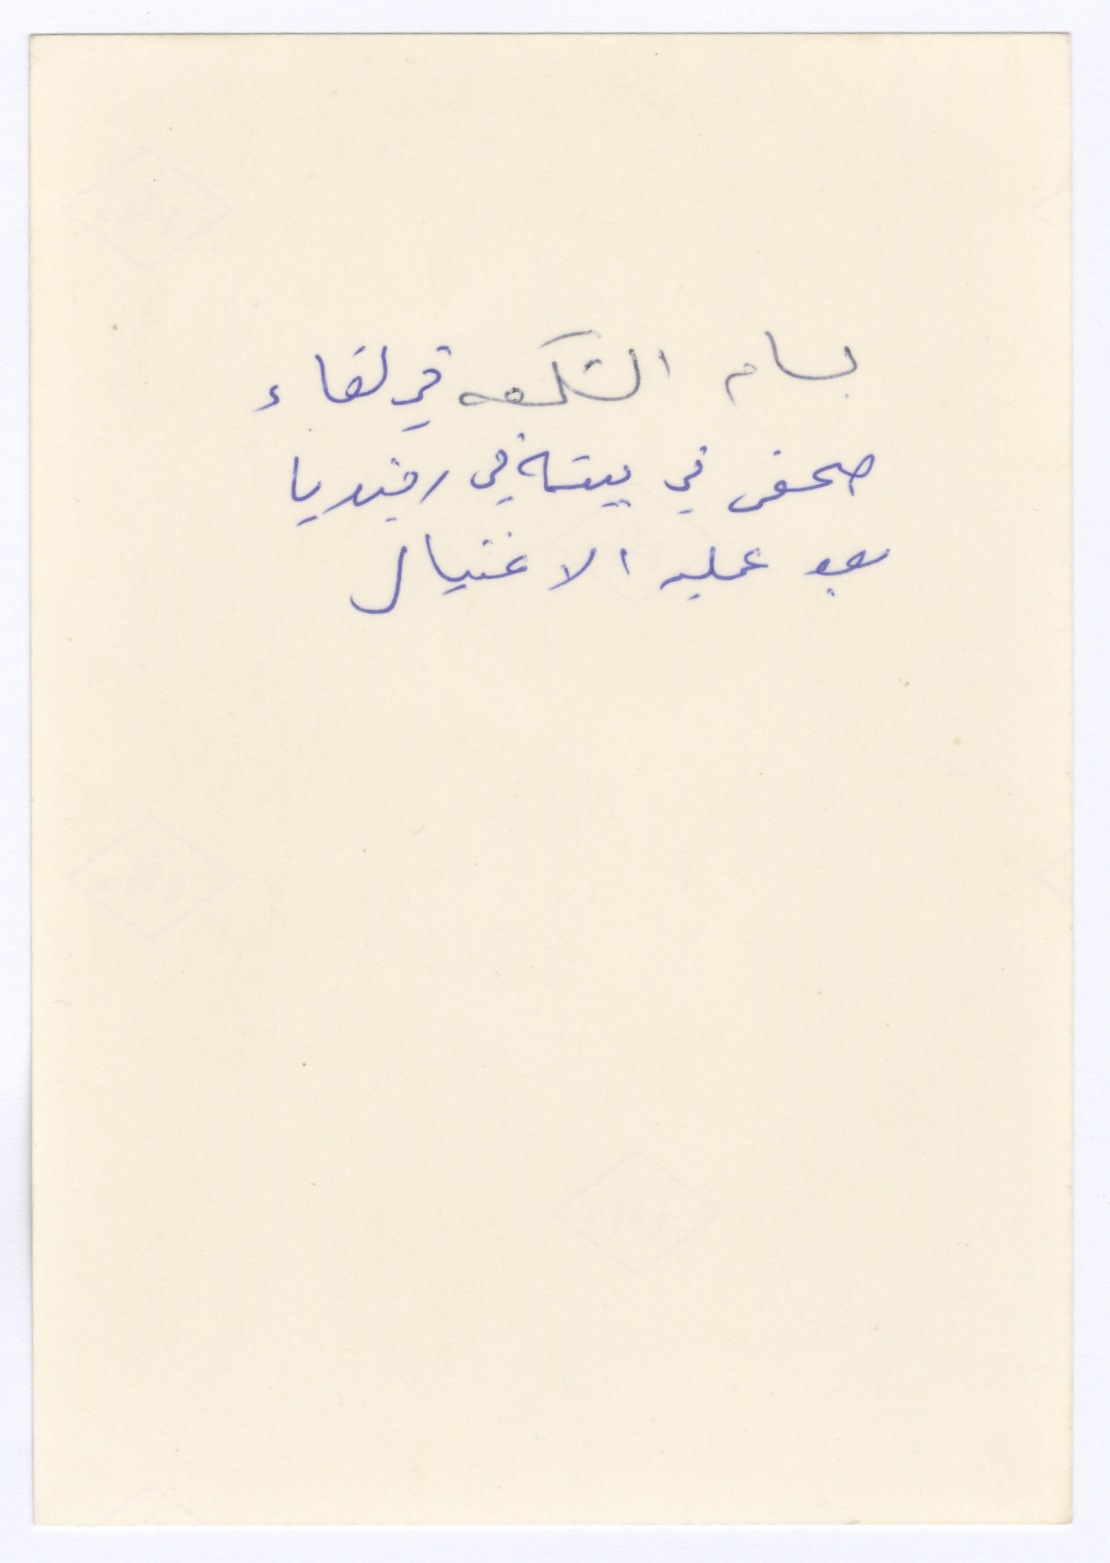 بسام الشكعه في لقاء
صحفي في بيته في رفيديا
بعد عمليه الاغتيال